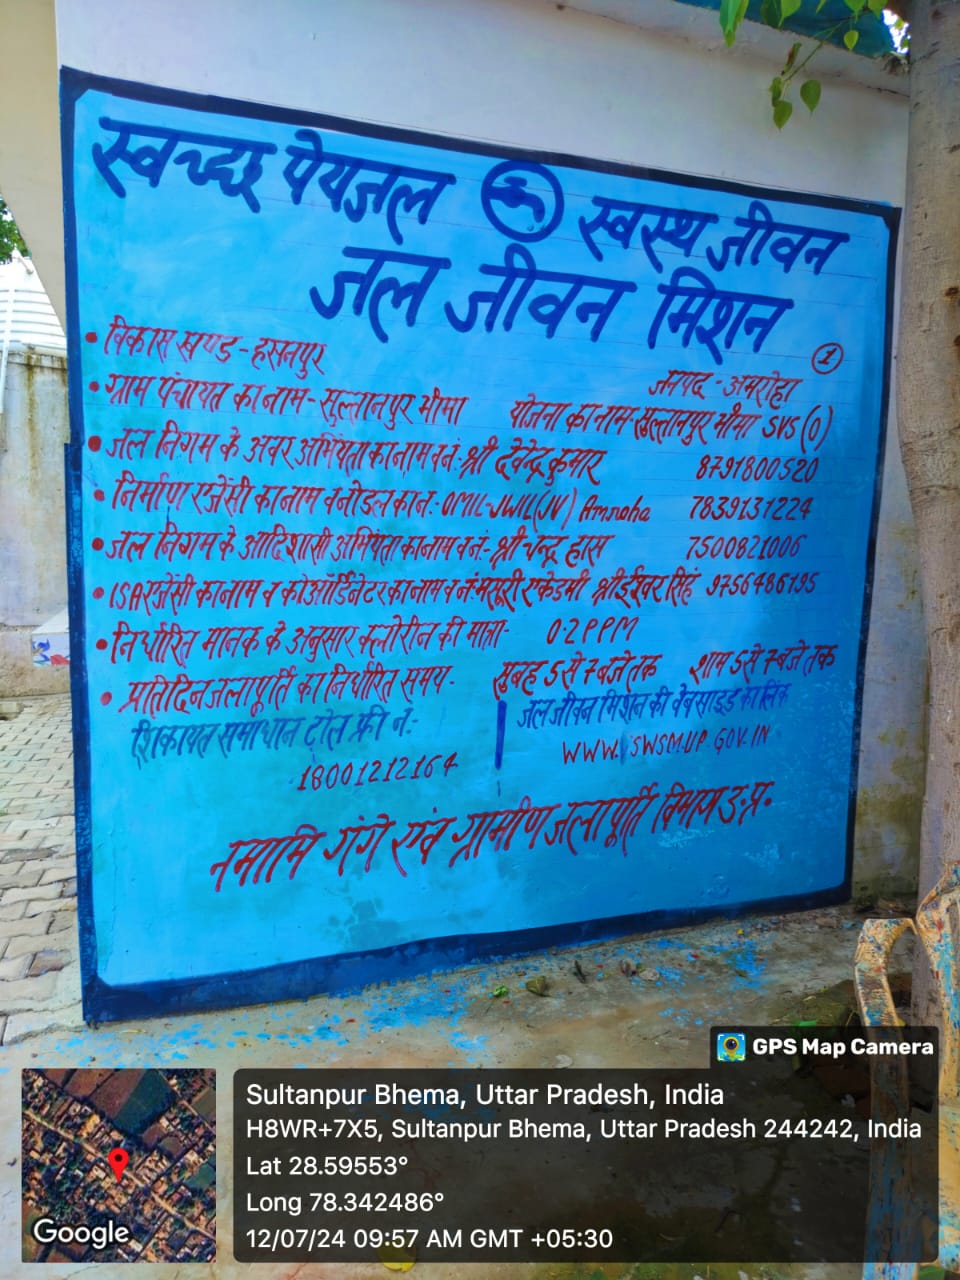 स्वच्छ पेयजल स्वस्थ जीवन
जल जीवन मिशन
1
• विकास खण्ड - हसनपुर जनपद - अमरोहा
• ग्राम पंचायत का नाम - सुल्तानपुर भीमा योजना का नाम - सुल्तानपुर भीमा SVS (0)
• जल निगम के अवर अभियंता का नाम व नं:- श्री देवेन्द्र कुमार 8791800520
• निर्माण एजेंसी का नाम व नोडल का नं:- OMIL-JWIL(JV) Amroha 7839131224
• जल निगम के आदिशासी अभियंता का नाम व नं:- श्री चन्द्र हास 7500821006
• ISA एजेंसी का नाम व कोऑर्डिनेटर का नाम व नं:- मसूरी एकेडमी श्री ईश्वर सिंह 9756486195
• निर्धारित मानक के अनुसार क्लोरीन की मात्रा - 0.2 PPM
• प्रतिदिन जलापूर्ति का निर्धारित समय - सुबह 5 से 7 बजे तक शाम 5 से 7 बजे तक
शिकायत समाधान टोल फ्री नं:-
18001212164
जल जीवन मिशन की वेबसाइड का लिंक
WWW. SWSM.UP.GOV.IN
नमामि गंगे एवं ग्रामीण जलापूर्ति विभाग उ.प्र.
GPS Map Camera
Sultanpur Bhema, Uttar Pradesh, India
H8WR+7X5, Sultanpur Bhema, Uttar Pradesh 244242, India
Lat 28.59553°
Long 78.342486°
12/07/24 09:57 AM GMT +05:30
Google